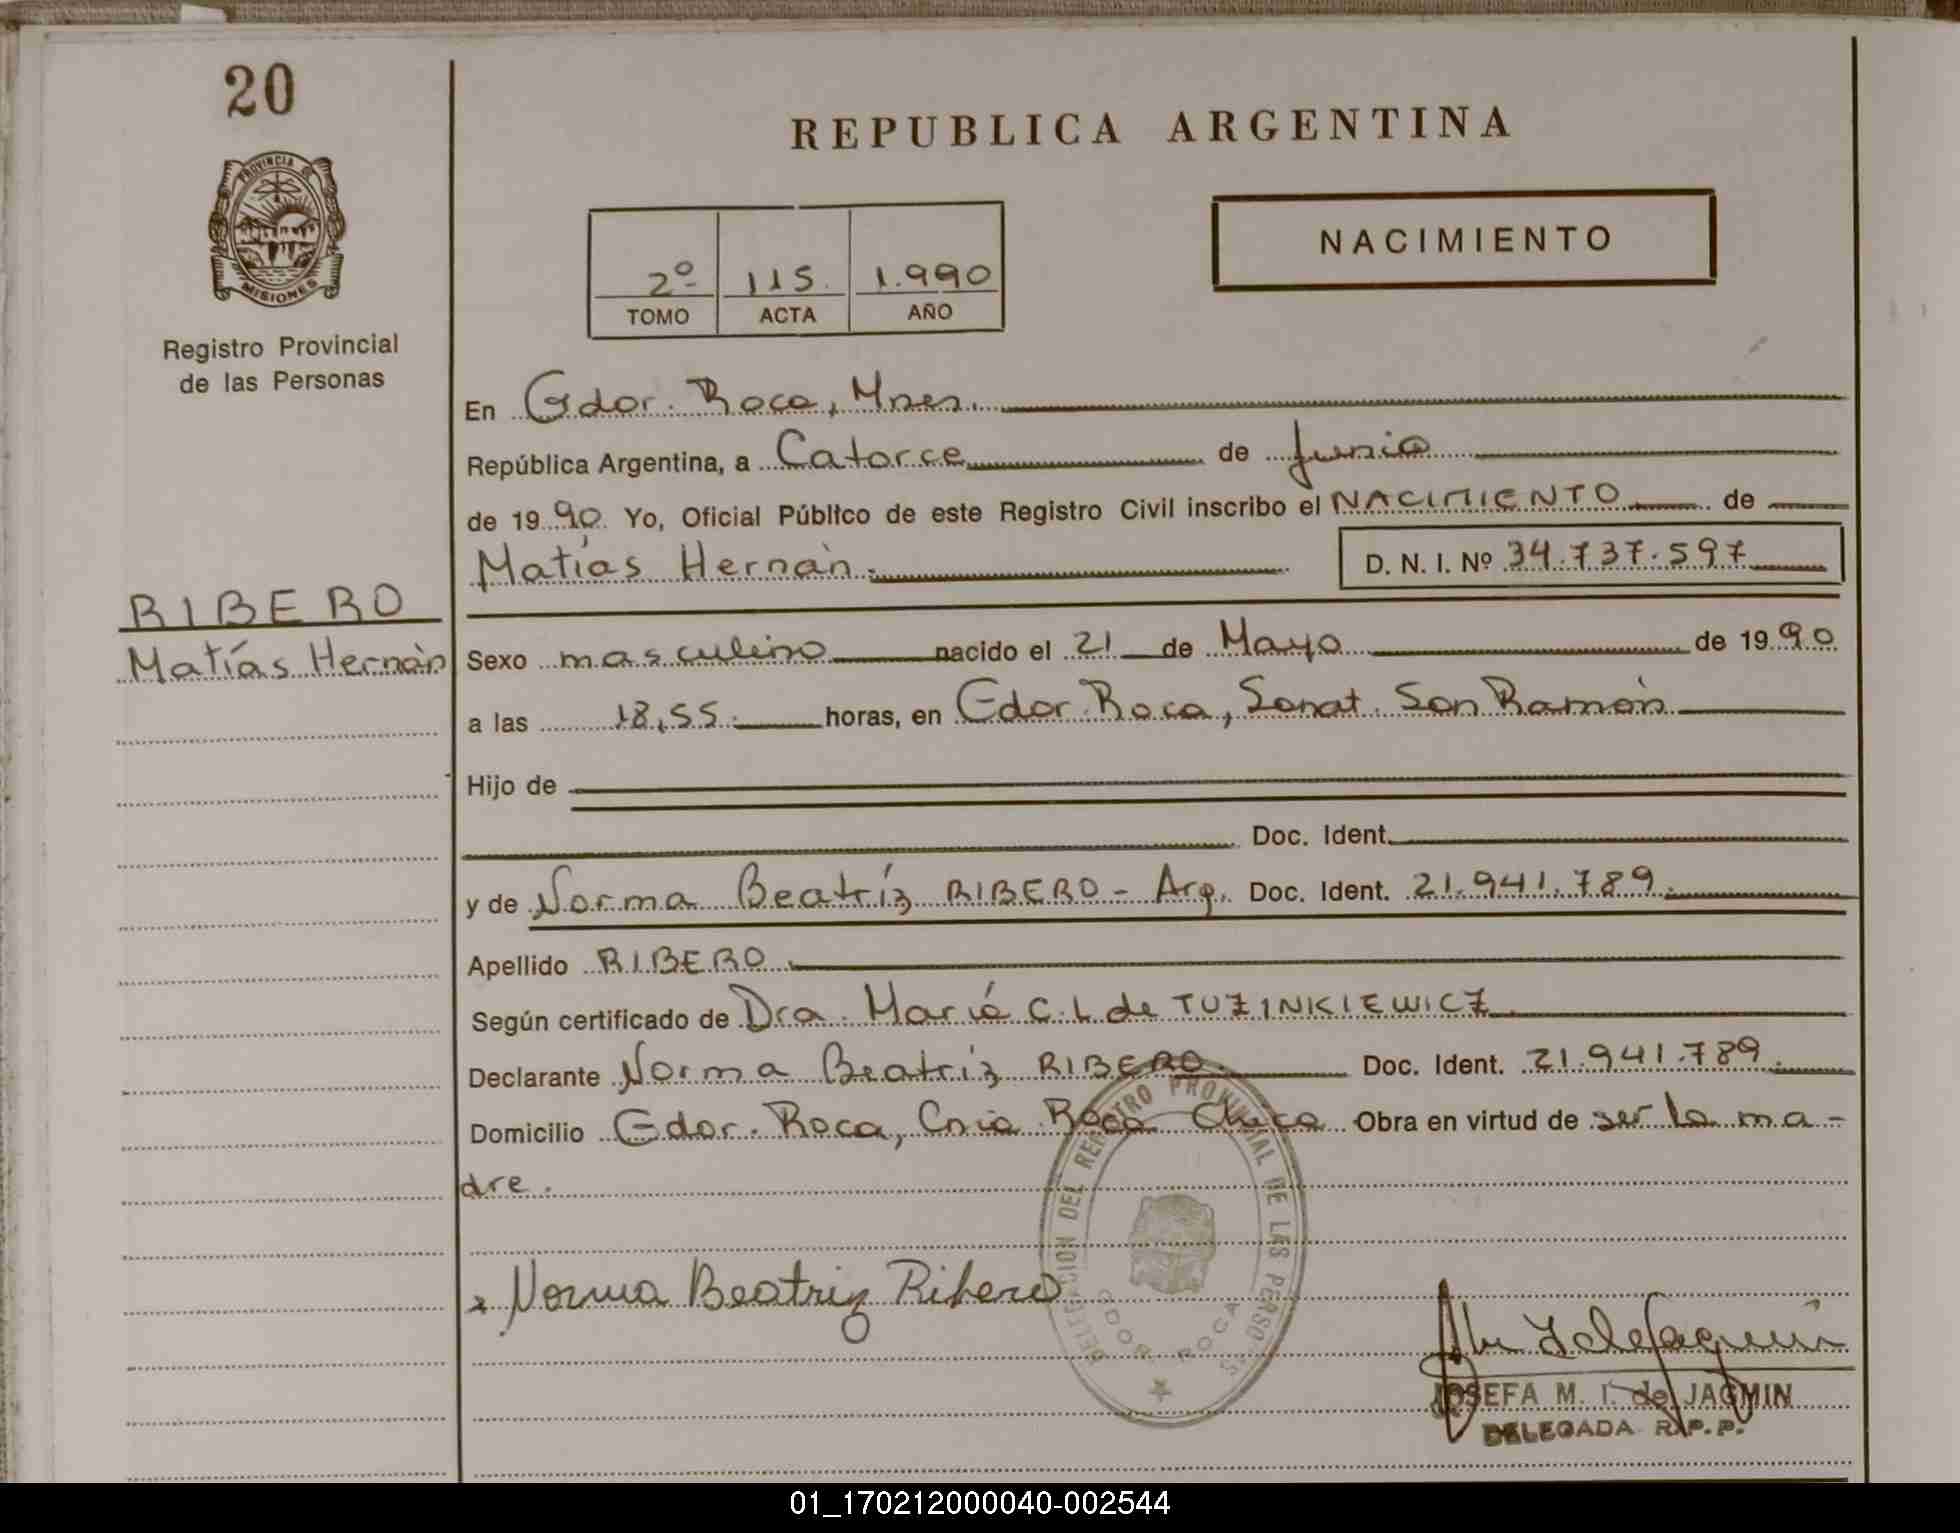 20
PROVINCIA DE
MISIONES
Registro Provincial
de las Personas
REPUBLICA ARGENTINA
NACIMIENTO
2º 115. 1.990
TOMO ACTA AÑO
En Gdor. Roca, Mnes.
República Argentina, a Catorce de Junio
de 1990 Yo, Oficial Público de este Registro Civil inscribo el NACIMIENTO de
Matías Hernán. D. N. I. Nº 34.737.597
RIBERO
Matías Hernán
Sexo masculino nacido el 21 de Mayo de 1990
a las 18,55 horas, en Gdor. Roca, Sanat. San Ramón
Hijo de
Doc. Ident.
y de Norma Beatríz RIBERO - Arg. Doc. Ident. 21.941.789.
Apellido RIBERO.
Según certificado de Dra. María C. L. de TUZINKIEWICZ.
Declarante Norma Beatríz RIBERO. Doc. Ident. 21.941.789.
Domicilio Gdor. Roca, Cnia. Roca Chica Obra en virtud de ser la ma-
dre.
DELEGACION DEL REGISTRO PROVINCIAL DE LAS PERSONAS
GDOR. ROCA
x Norma Beatriz Ribero
JOSEFA M. I. de JAGMIN
DELEGADA R.P.P.
01_170212000040-002544